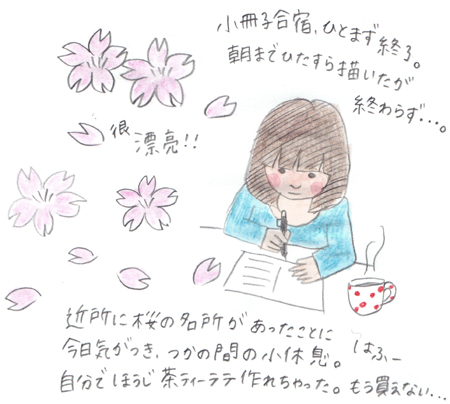 小冊子合宿、ひとまず終了。
朝までひたすら描いたが
終わらず…。
很漂亮!!
近所に桜の名所があったことに
今日気がつき、つかの間の小休息。
自分でほうじ茶ティーラテ作れちゃった。もう買えない…
はふー